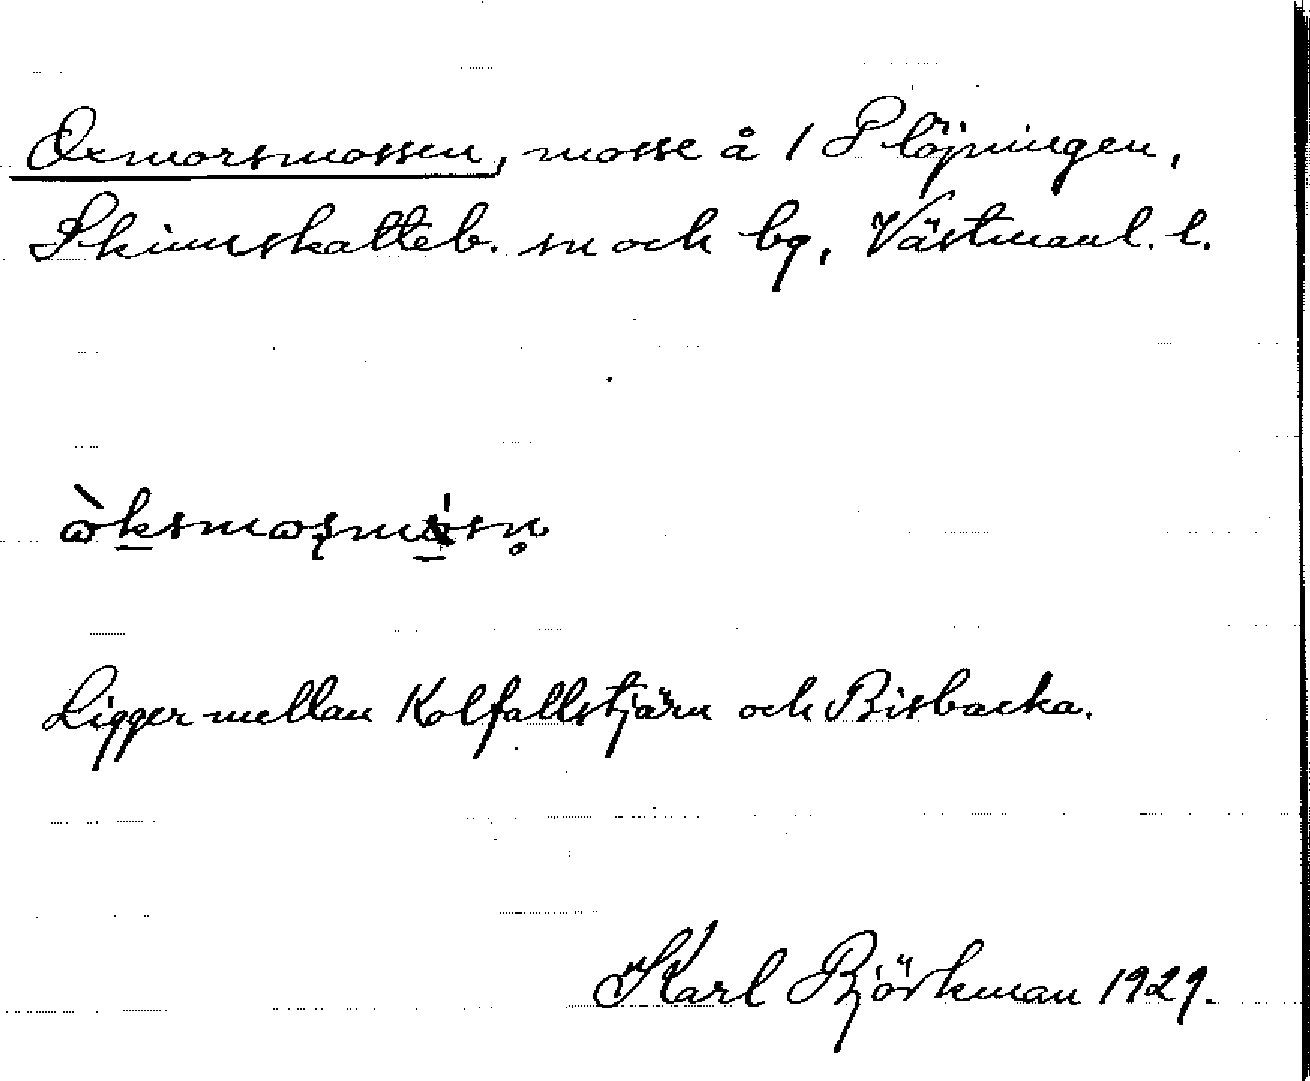 Oxmorsmossen, mosse å 1 Plöjningen,
Skinnskatteb. sn och bg, Västmanl. l.
Ligger mellan Kolfallstjärn och Bisbacka.
Karl Björkman 1929.